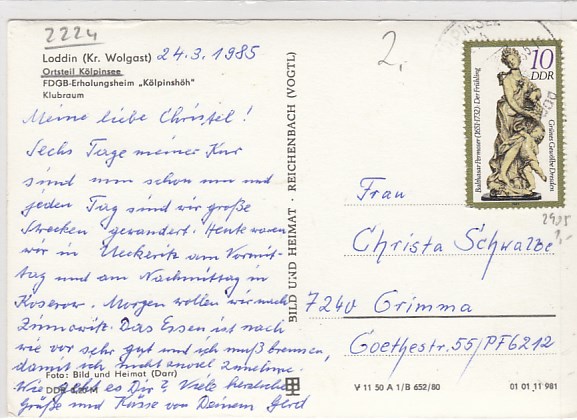 2224
Loddin (Kr. Wolgast) 24.3.1985
Ortsteil Kölpinsee
FDGB-Erholungsheim „Kölpinshöh"
Klubraum
Meine liebe Christel!
Sechs Tage meiner Kur
sind nun schon um und
jeden Tag sind wir große
Strecken gewandert. Heute waren
wir in Ueckeritz am Vormit-
tag und am Nachmittag in
Koserow. Morgen wollen wir nach
Zinnowitz. Das Essen ist nach
wie vor sehr gut und ich muß bremsen,
damit ich nicht zunehme.
Foto: Bild und Heimat (Dan)
Wie geht es Dir? Viele herzliche
DDR
Grüße und Küsse von Deinem Gerd
BILD UND HEIMAT · REICHENBACH (VOGTL)
2,
10
DDR
Balthasar Permoser (1651-1732) · Der Frühling
Grünes Gewölbe Dresden
2925
1,-
Frau
Christa Schwalbe
7240 Grimma
Goethestr. 55/PF6212
V 11 50 A 1/B 652/80
01 01 11 981